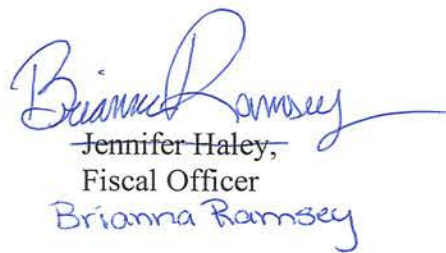 Brianna Ramsey
Jennifer Haley,
Fiscal Officer
Brianna Ramsey